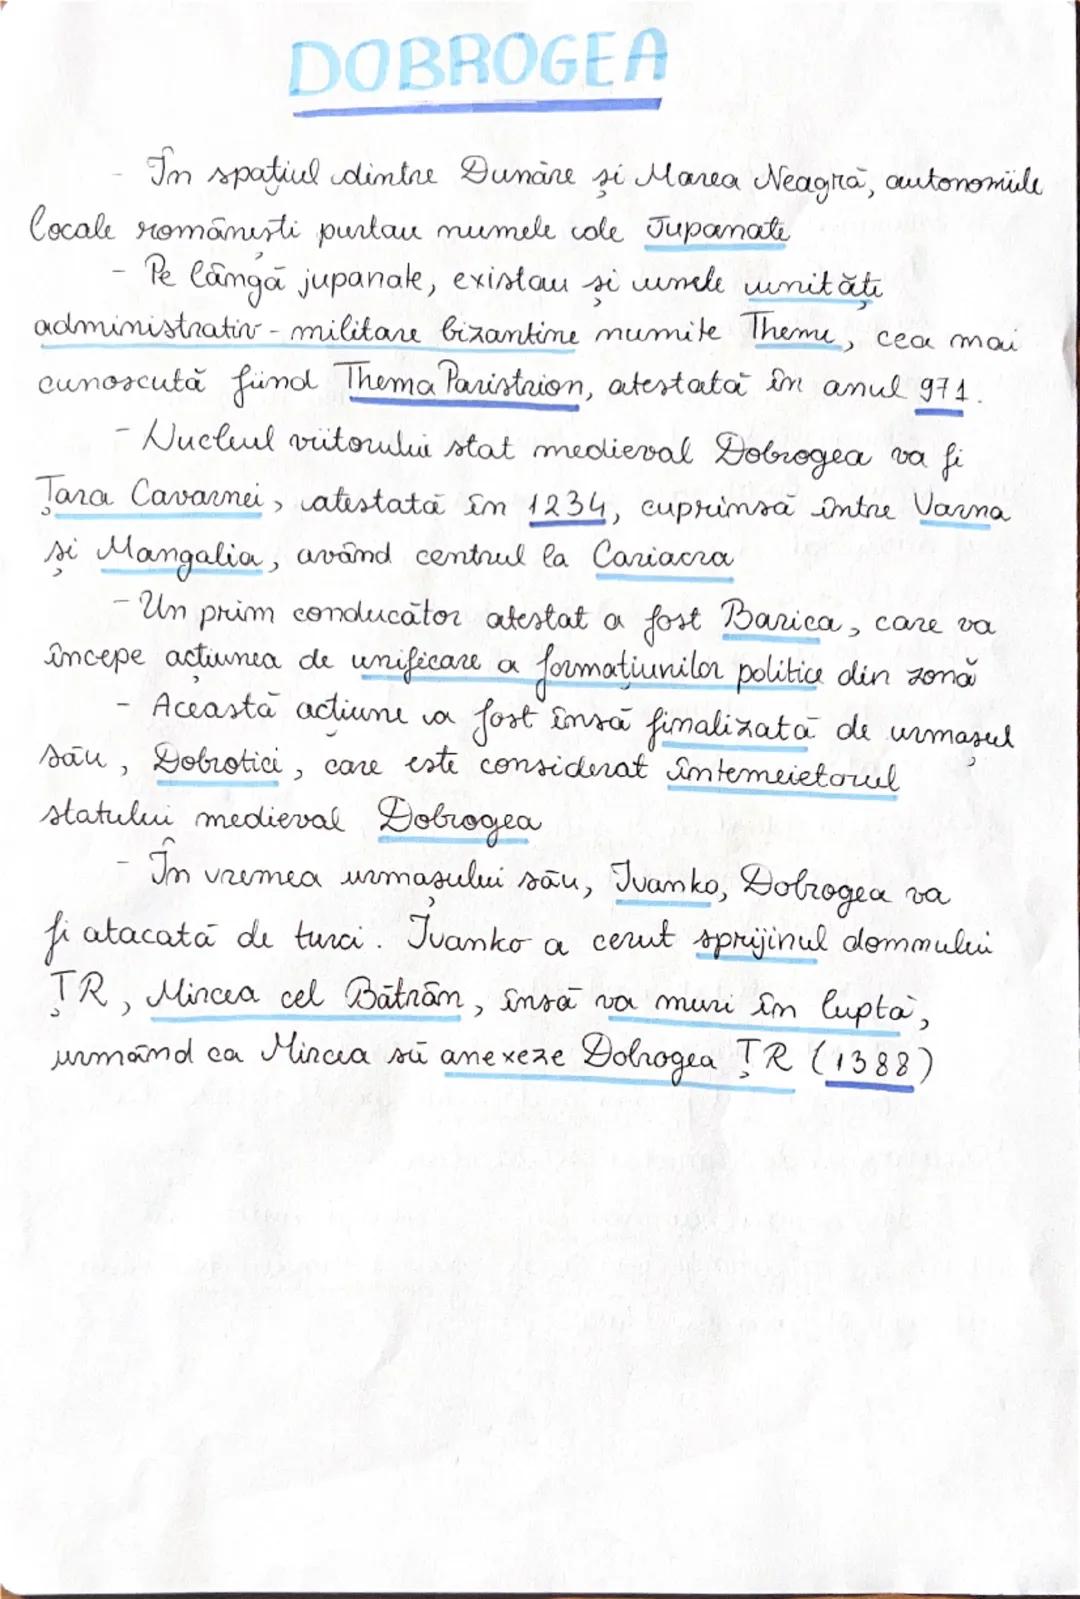 DOBROGEA
- În spațiul dintre Dunăre și Marea Neagră, autonomiile
locale românești purtau numele de Jupanate
- Pe lângă jupanate, existau și unele unități
administrativ - militare bizantine numite Theme, cea mai
cunoscută fiind Thema Paristrion, atestată în anul 971.
- Nucleul viitorului stat medieval Dobrogea va fi
Țara Cavarnei, atestată în 1234, cuprinsă între Varna
și Mangalia, având centrul la Cariacra
- Un prim conducător atestat a fost Barica, care va
începe acțiunea de unificare a formațiunilor politice din zonă
- Această acțiune a fost însă finalizată de urmașul
său, Dobrotici, care este considerat întemeietorul
statului medieval Dobrogea
- În vremea urmașului său, Ivanko, Dobrogea va
fi atacată de turci. Ivanko a cerut sprijinul domnului
ȚR, Mircea cel Bătrân, însă va muri în luptă,
urmând ca Mircea să anexeze Dobrogea ȚR (1388)